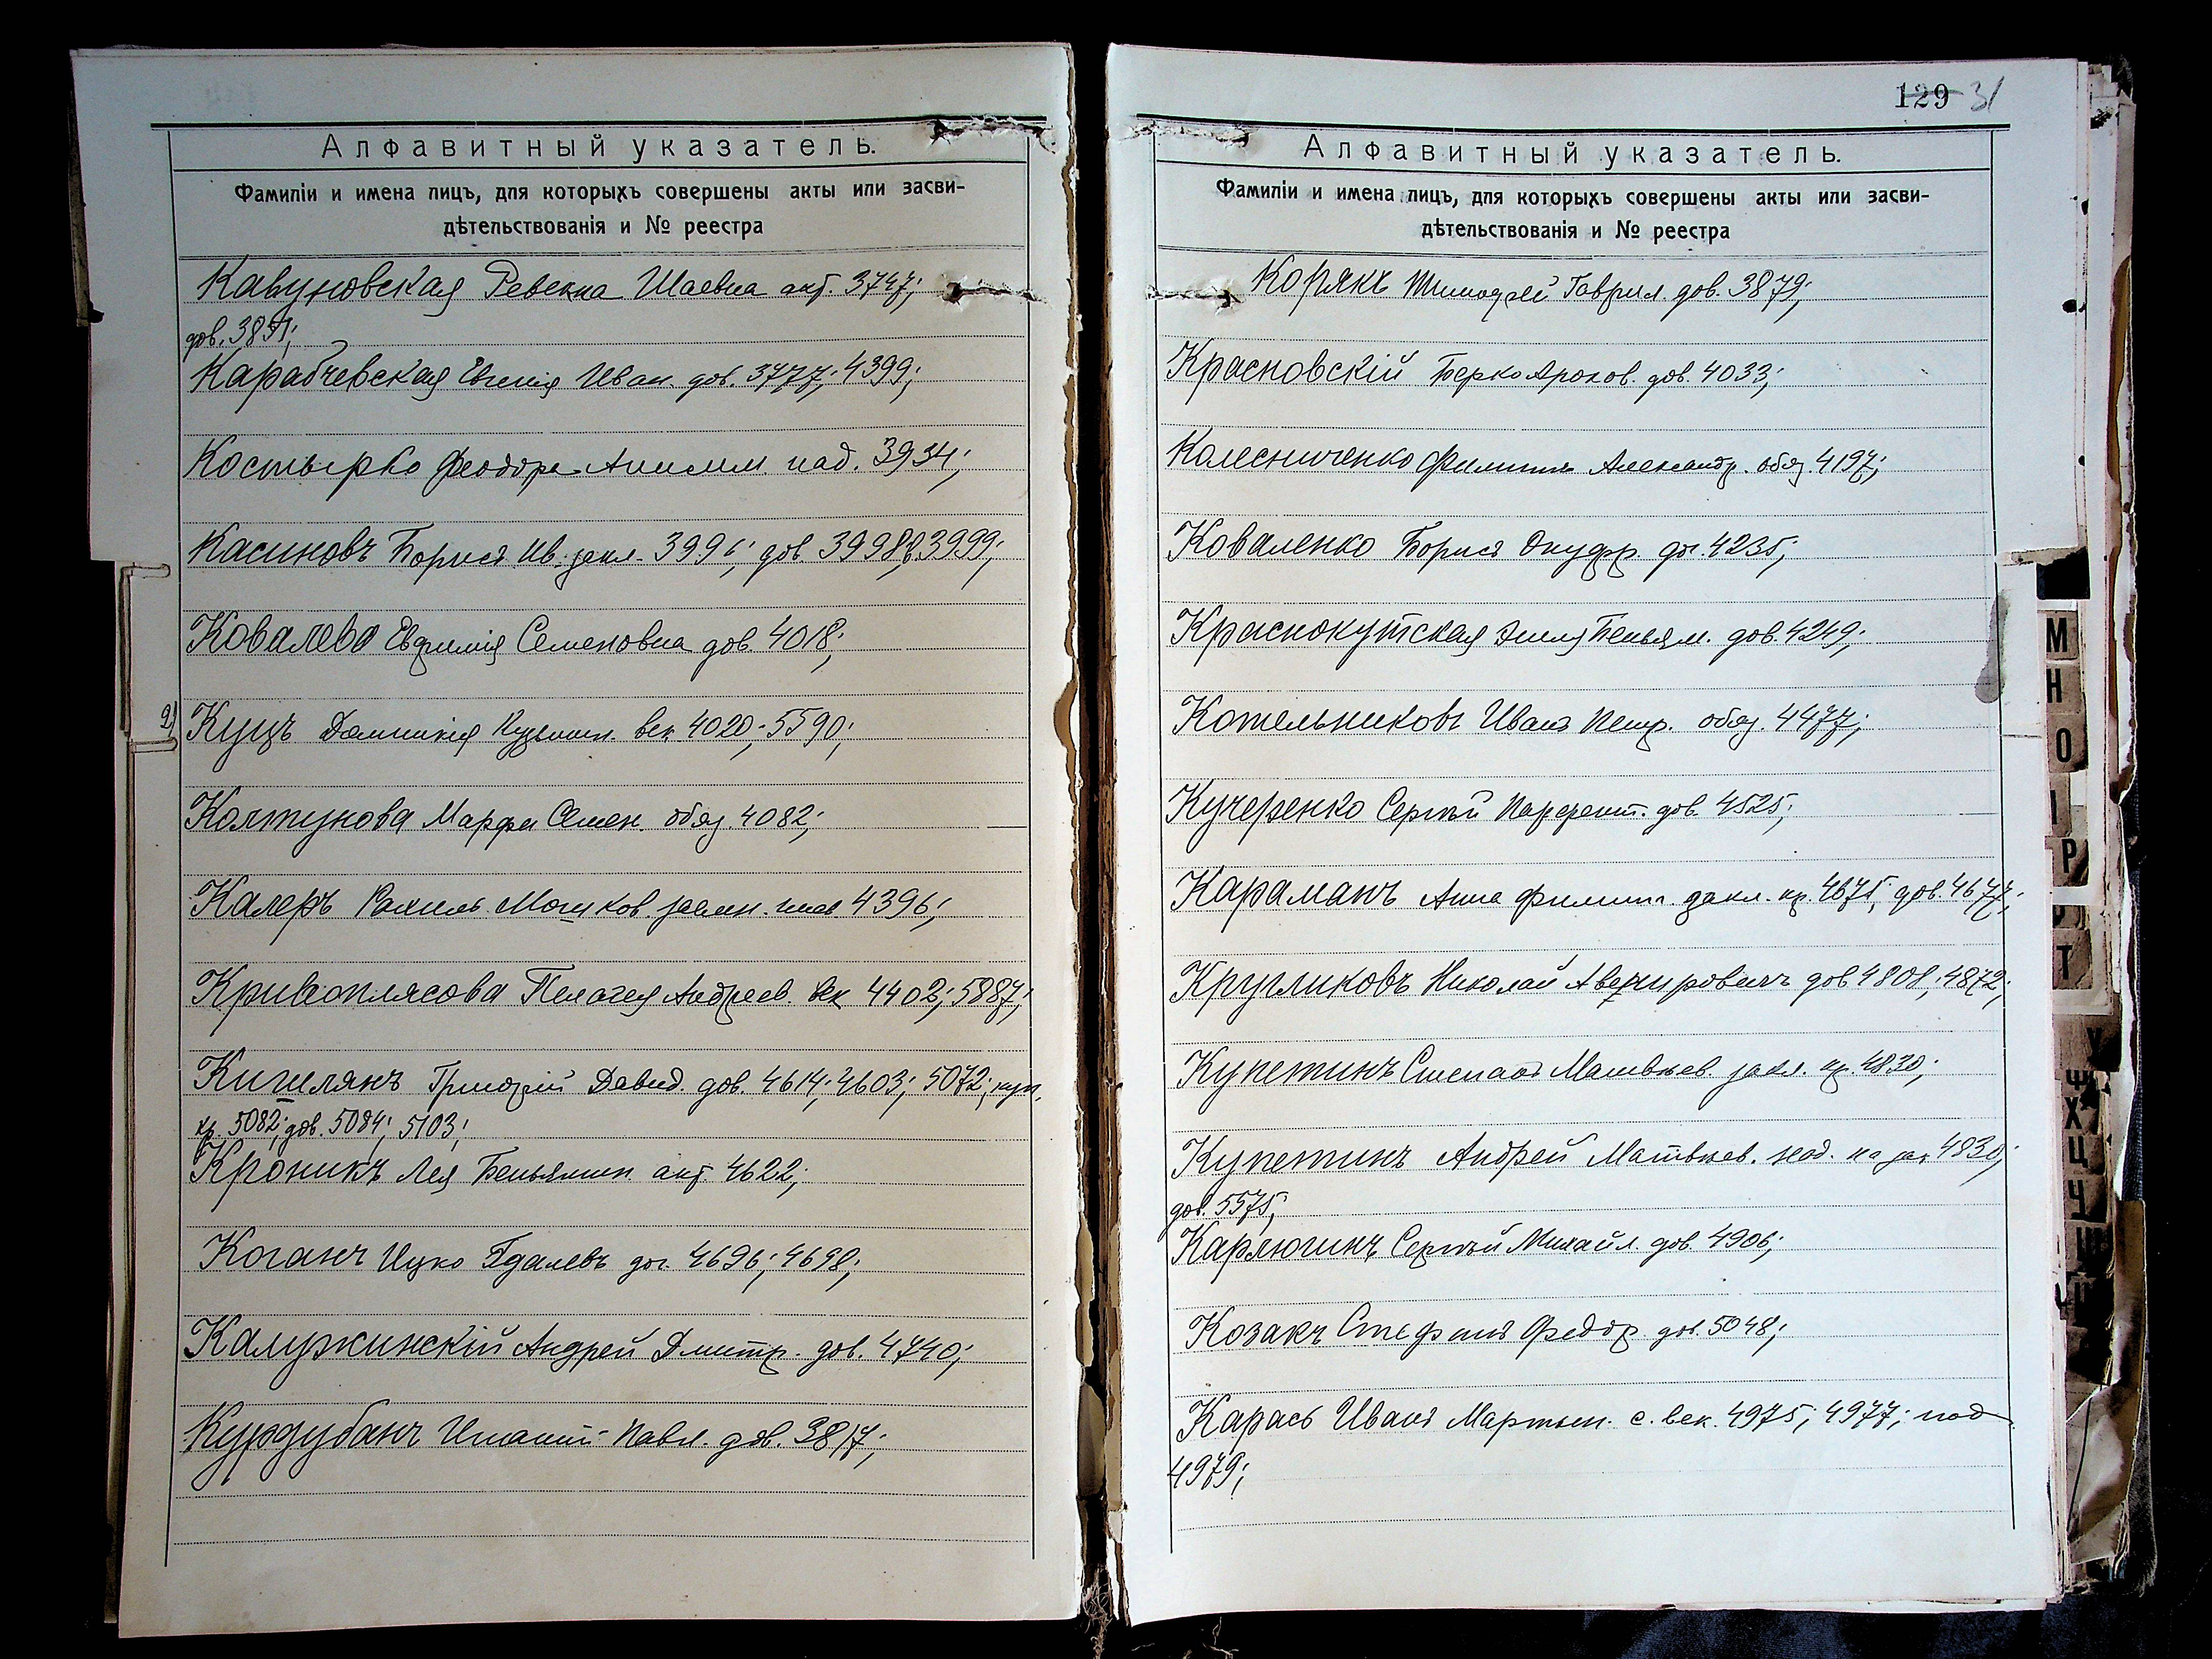 Алфавитный указатель.
Фамиліи и имена лицъ, для которыхъ совершены акты или засви-
дѣтельствованія и № реестра
Кавуновская Ревекка Шаевна акт. 3747;
дов. 3851;
Карабчевская Евгенія Иван. дов. 3777; 4399;
Костырко Феодора Анисим. под. 3934;
Касиновъ Борисъ Ив. 3996; дов. 3998; 3999;
Ковалева Евфимія Семеновна дов. 4018;
2) Куцъ Домникія Кузьмин. век. 4020; 5590;
Колтукова Марфа Семен. обяз. 4082;
Калеръ Рахиль Мошков. 4396;
Кривоплясова Пелагея Андреев. век 4402; 5887;
Кигилянъ Григорій Давид. дов. 4614; 4603; 5072; куп.
кр. 5082; дов. 5084; 5103;
Кроникъ Лея Беньямин. акт. 4622;
Коганъ Ицко Гдалевъ дог. 4696; 4698;
Калужинскій Андрей Дмитр. дов. 4740;
Курдубанъ Игнатій Павл. дов. 3817;
129 31
Алфавитный указатель.
Фамиліи и имена лицъ, для которыхъ совершены акты или засви-
дѣтельствованія и № реестра
Корякъ Тимофей Гаврил. дов. 3879;
Красновскій Берко Аронов. дов. 4033;
Колесниченко Филиппъ Александр. обяз. 4197;
Коваленко Борисъ Онуфр. дог. 4235;
Краснокутская Беньям. дов. 4249;
Котельниковъ Иванъ Петр. обяз. 4477;
Кучеренко Сергѣй Парфент. дов. 4525;
Караманъ Анна Филипп. закл. кр. 4675; дов. 4677;
Кругликовъ Николай Авенировичъ дов 4808; 4872;
Купетинъ Степанъ Матвѣев. закл. кр. 4830;
Купетинъ Андрей Матвѣев. над. на зак 4830;
дов. 5575;
Карлюгинъ Сергѣй Михайл. дов. 4906;
Козакъ Стефанъ Федор. дов. 5048;
Карась Иванъ Мартын. с. век. 4975; 4977; под
4979;
М
Н
О
І
Р
Т
У
Ф
Х
Ц
Ч
Ш